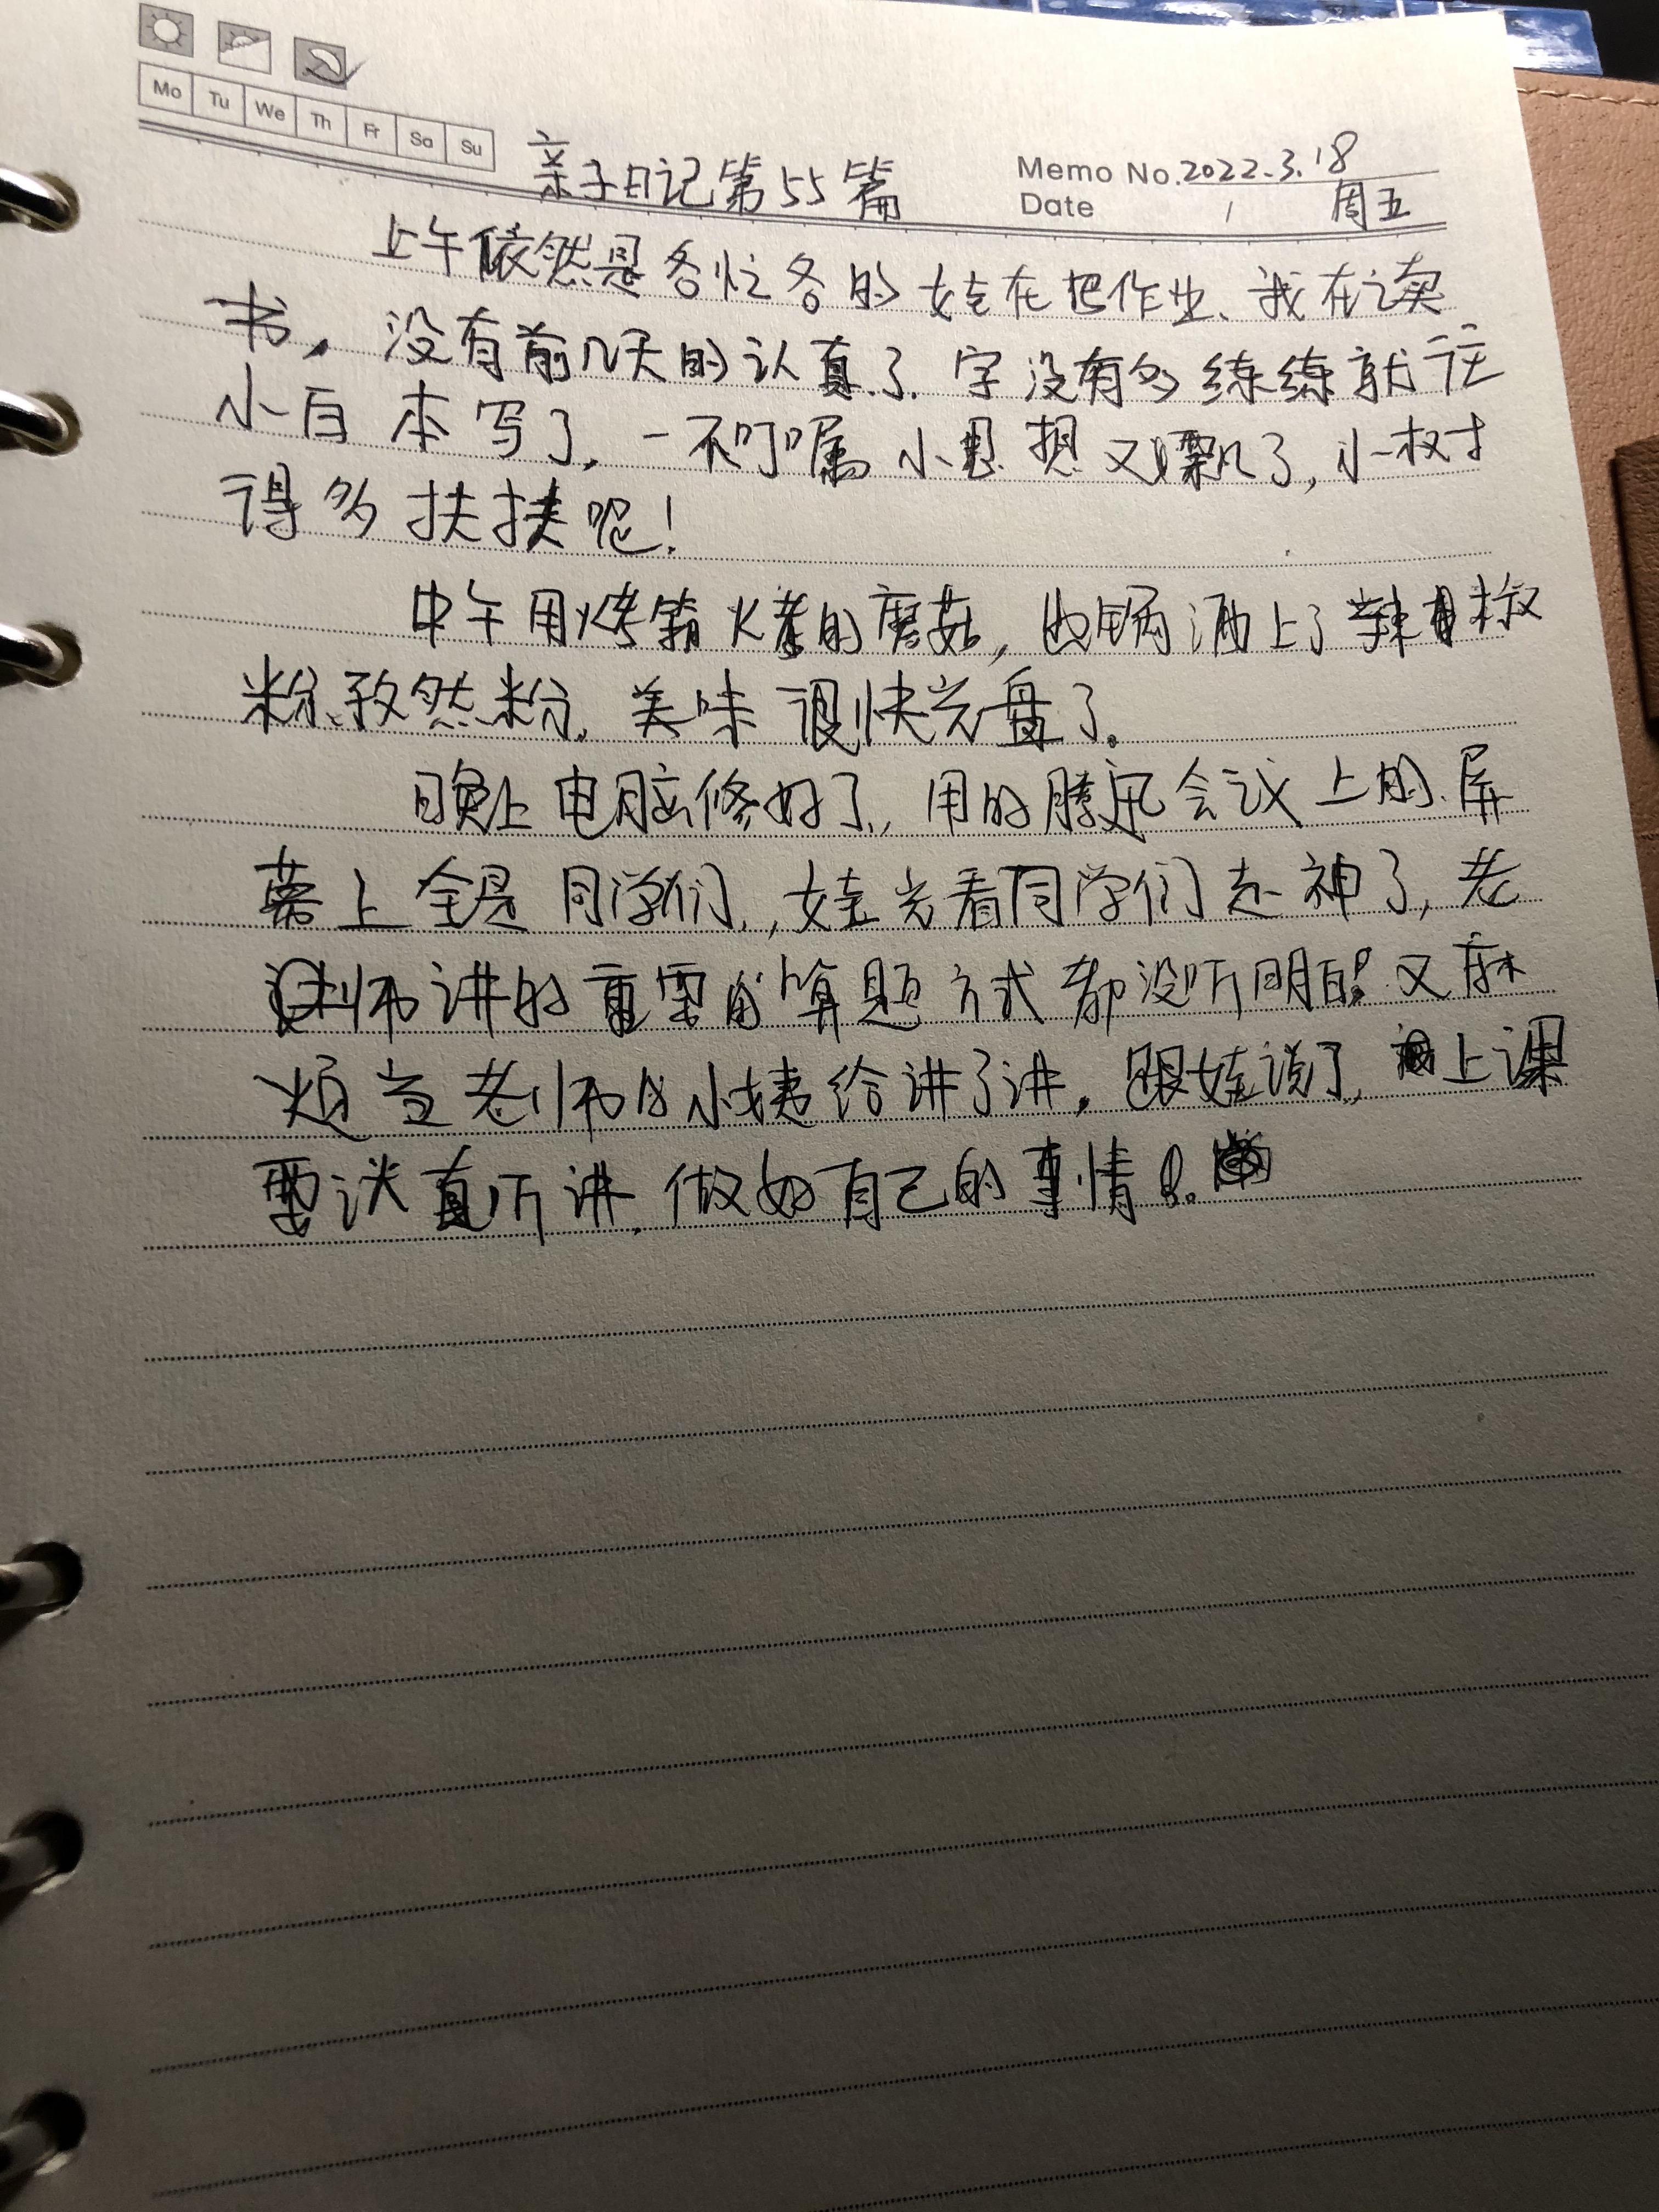 Mo Tu We Th Fr Sa Su
亲子日记第55篇
Memo No. 2022.3.18
Date / 周五
上午依然是各忙各的娃在把作业、我在读
书，没有前几天的认真了.字没有多练练就往
小白本写了,一不叮嘱小思想又飘了,小树
得多扶扶呢!
中午用烤箱烤的蘑菇,出锅洒上了辣椒
粉、孜然粉,美味很快光盘了.
晚上电脑修好了,用的腾讯会议上的.屏
幕上全是同学们,娃光看同学们走神了,老
师讲的重要的算题方式都没听明白!又麻
烦老师小姨给讲了讲.跟娃说了,上课
要认真听讲,做好自己的事情